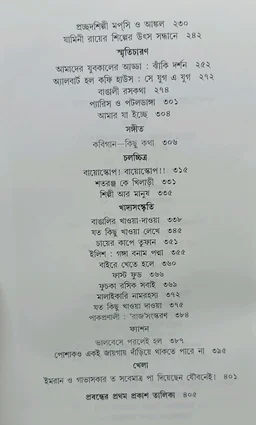 প্রচ্ছদশিল্পী মপাসি ও আঙ্কল ২৩০
যামিনী রায়ের শিল্পের উৎস সন্ধানে ২৪২
স্মৃতিচারণ
আমাদের যুবকালের আড্ডা : ঝাঁকি দর্শন ২৫২
অ্যালবার্ট হল কফি হাউস : সে যুগ এ যুগ ২৭২
বাঙালী রসকথা ২৭৪
প্যারিস ও পটলডাঙ্গা ৩০১
আমার যা ইচ্ছে ৩০৪
সঙ্গীত
কবিগান—কিছু কথা ৩০৬
চলচ্চিত্র
বায়োস্কোপ! বায়োস্কোপ!! ৩১৫
শতরঞ্জ কে খিলাড়ী ৩৩১
শিল্পী আর মানুষ ৩৩৫
খাদ্যসংস্কৃতি
বাঙালির খাওয়া-দাওয়া ৩৩৮
যত কিছু খাওয়া লেখে ৩৪৫
চায়ের কাপে তুফান ৩৫১
ইলিশ : গঙ্গা বনাম পদ্মা ৩৫৫
বাইরে খেতে হলে ৩৬০
ফাস্ট ফুড ৩৬৬
ফুচকা রসিক সবাই ৩৬৯
মালাইকারি নামরহস্য ৩৭২
যত কিছু খাওয়া দাওয়া ৩৭৫
পাকপ্রণালী : 'রাজ'সংস্করণ ৩৮৪
ফ্যাশন
ভালবেসে পরলেই হল ৩৮৭
পোশাকও একই জায়গায় দাঁড়িয়ে থাকতে পারে না ৩৯৫
খেলা
ইমরান ও গাভাসকার ত সবেমাত্র পা দিয়েছেন যৌবনেই! ৪০১
প্রবন্ধের প্রথম প্রকাশ তালিকা ৪০৫